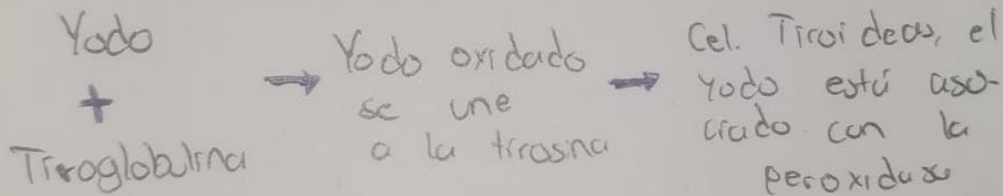 Yodo
+
Tiroglobulina
→ Yodo oxidado
se une
a la tirosina
→ Cel. Tiroideas, el
yodo está aso-
ciado con la
peroxidasa